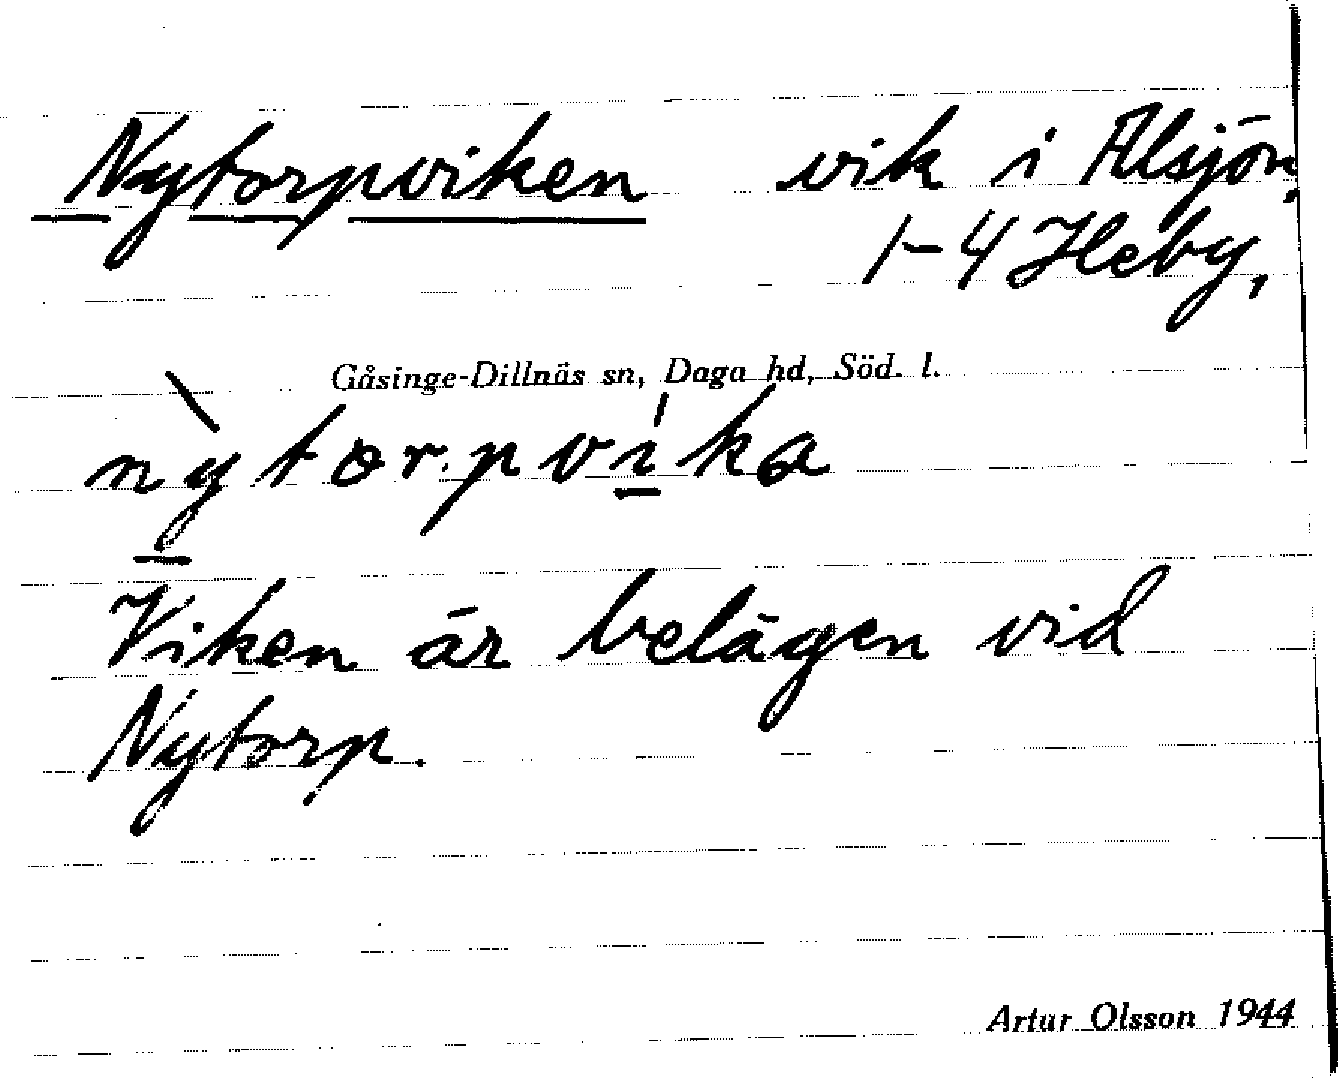 Nytorpviken vik i Älsjön,
1-4 Heby,
Gåsinge-Dillnäs sn, Daga hd, Söd. l.
nỳtorpvíka
Viken är belägen vid
Nytorp.
Artur Olsson 1944